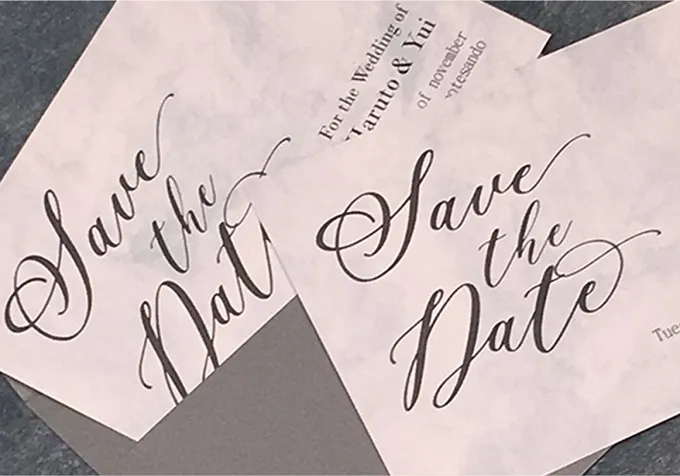 Save
the
Date
For the Wedding of
Haruto & Yui
of november
Save
the
Date